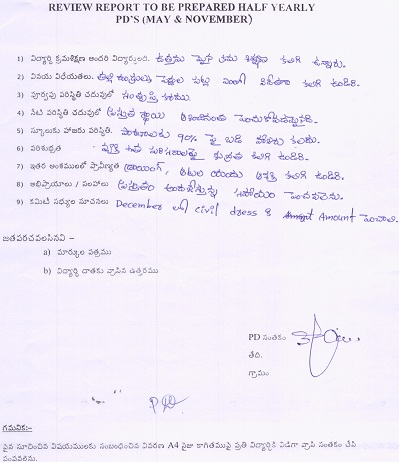 REVIEW REPORT TO BE PREPARED HALF YEARLY
PD'S (MAY & NOVEMBER)
1) విద్యార్థి క్రమశిక్షణ అందరి విద్యార్థులది. ఉత్తమ మైన క్రమ శిక్షణ కలిగి ఉన్నారు.
2) వినయ విధేయతలు. పెద్దల పట్ల కలిగి ఉండిరి.
3) పూర్వపు పరిస్థితి చదువులో సంతృప్తి కరము
4) నేటి పరిస్థితి చదువులో ప్రస్తుత స్థాయి
5) స్కూలుకు హాజరు పరిస్థితి. పాఠశాలకు 90% పై బడి హాజరు కలదు.
6) పరిశుభ్రత శుభ్రత కలిగి ఉండిరి.
7) ఇతర అంశములలో ప్రావీణ్యత డ్రాయింగ్, ఆటల యందు ఆసక్తి కలిగి ఉండిరి.
8) అభిప్రాయాలు / సలహాలు ప్రస్తుతం సహాయం పెంచవలెను.
9) కమిటి సభ్యుల సూచనలు December లో civil dress & Amount పెంచాలి.
జతపరచవలసినవి –
a) మార్కుల పత్రము
b) విద్యార్థి దాతకు వ్రాసిన ఉత్తరము
PD సంతకం
తేది.
గ్రామం
గమనిక:-
పైన సూచించిన విషయములకు సంబంధించిన వివరణ A4 సైజు కాగితముపై ప్రతి విద్యార్థికి విడిగా వ్రాసి సంతకం చేసి
పంపవలెను.